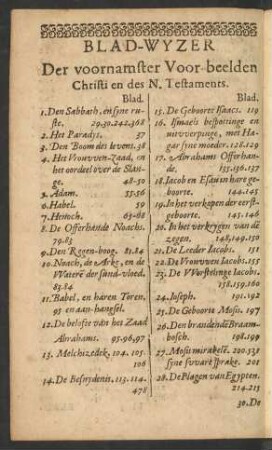 BLAD-WYZER
Der voornamster Voor-beelden
Christi en des N. Testaments.
Blad.
1. Den Sabbath, en syne rus-
ste. 29.30.242.368
2. Het Paradys. 37
3. Den Boom des levens. 38
4. Het Vrouwen-Zaad, en
het oordeel over de Slan-
ge. 48-50
5. Adam. 55-56
6. Habel. 59
7. Henoch. 63-68
8. De Offerhande Noachs.
79.83
9. Den Regen-boog. 81.84
10. Noach, de Arke, en de
Waterē der sund-vloed.
83.84
11. Babel, en haren Toren,
93 en aan-hangsel.
12. De belofte van het Zaad
Abrahams. 95,96,97
13. Melchizedek, 104. 105.
106
14. De Besnydenis. 113. 114.
478
Blad.
15. De Geboorte Isaacs. 119
16. Ismaels bespottinge en
uitwerpinge, met Ha-
gar syne moeder. 128.129
17. Abrahams Offerhan-
de. 155,156,157
18. Jacob en Esau in hare ge-
boorte. 144.145
19. In het verkopen der eerst-
geboorte. 144.146
20. In het verkrygen van dē
zegen. 149.150
21. De Leeder Jacobs. 151
22. De Vrouwen Jacobs. 155
23. De Worstelinge Jacobs.
158.159.160
24. Joseph. 191.192
25. De Geboorte Mosis. 197
26. Den brandende Braam-
bosch. 198
27. Mosis mirakelē. 200.53
syne swvare sprake. 201
28. De Plagen van Egypten.
214.215
30. De